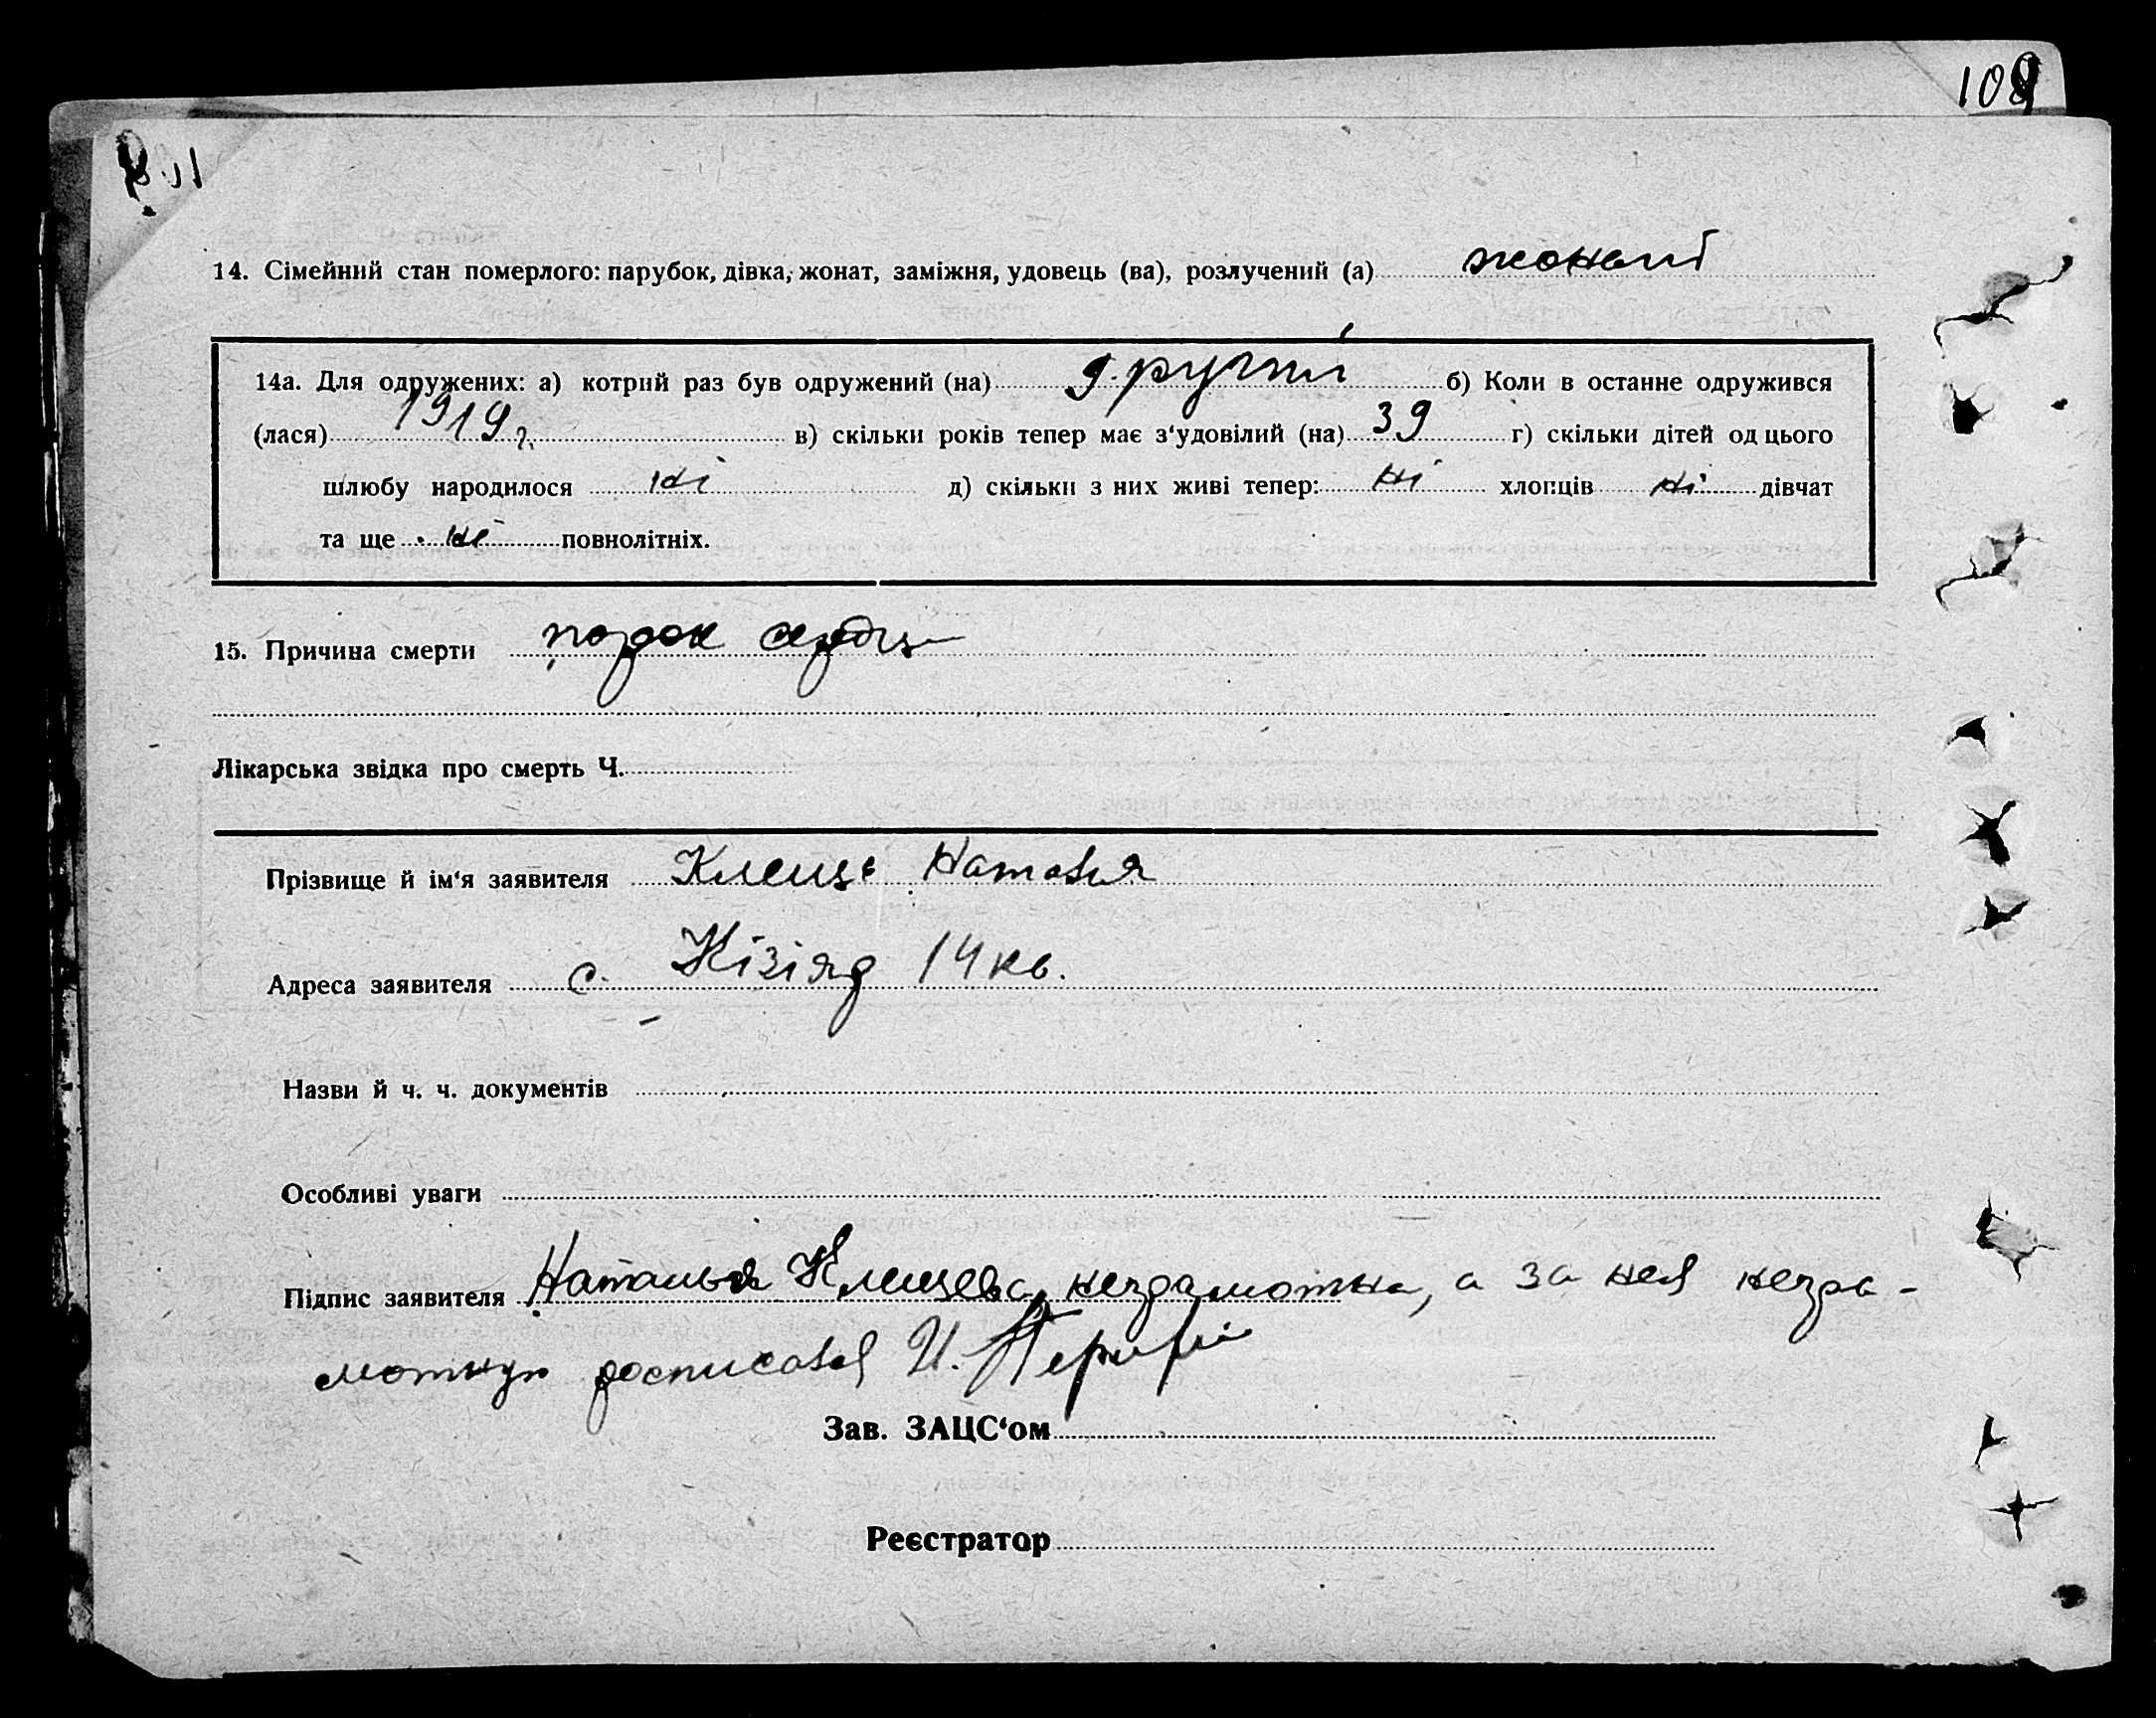 109
14. Сімейний стан померлого: парубок, дівка, жонат, заміжня, удовець (ва), розлучений (а) жонат
14а. Для одружених: а) котрий раз був одружений (на) другий б) Коли в останне одружився
(лася) 1919 г. в) скільки років тепер має з'удовілий (на) 39 г) скільки дітей од цього
шлюбу народилося ні д) скільки з них живі тепер: ні хлопців ні дівчат
та ще ні повнолітніх.
15. Причина смерти порок сердца
Лікарська звідка про смерть Ч.
Прізвище й ім'я заявителя Наталья
Адреса заявителя с. Кізіяр 14 кв.
Назви й ч. ч. документів
Особливі уваги
Підпис заявителя Наталья Клещева неграмотна, а за нея негра-
мотную росписався И.
Зав. ЗАЦС'ом
Реєстратор